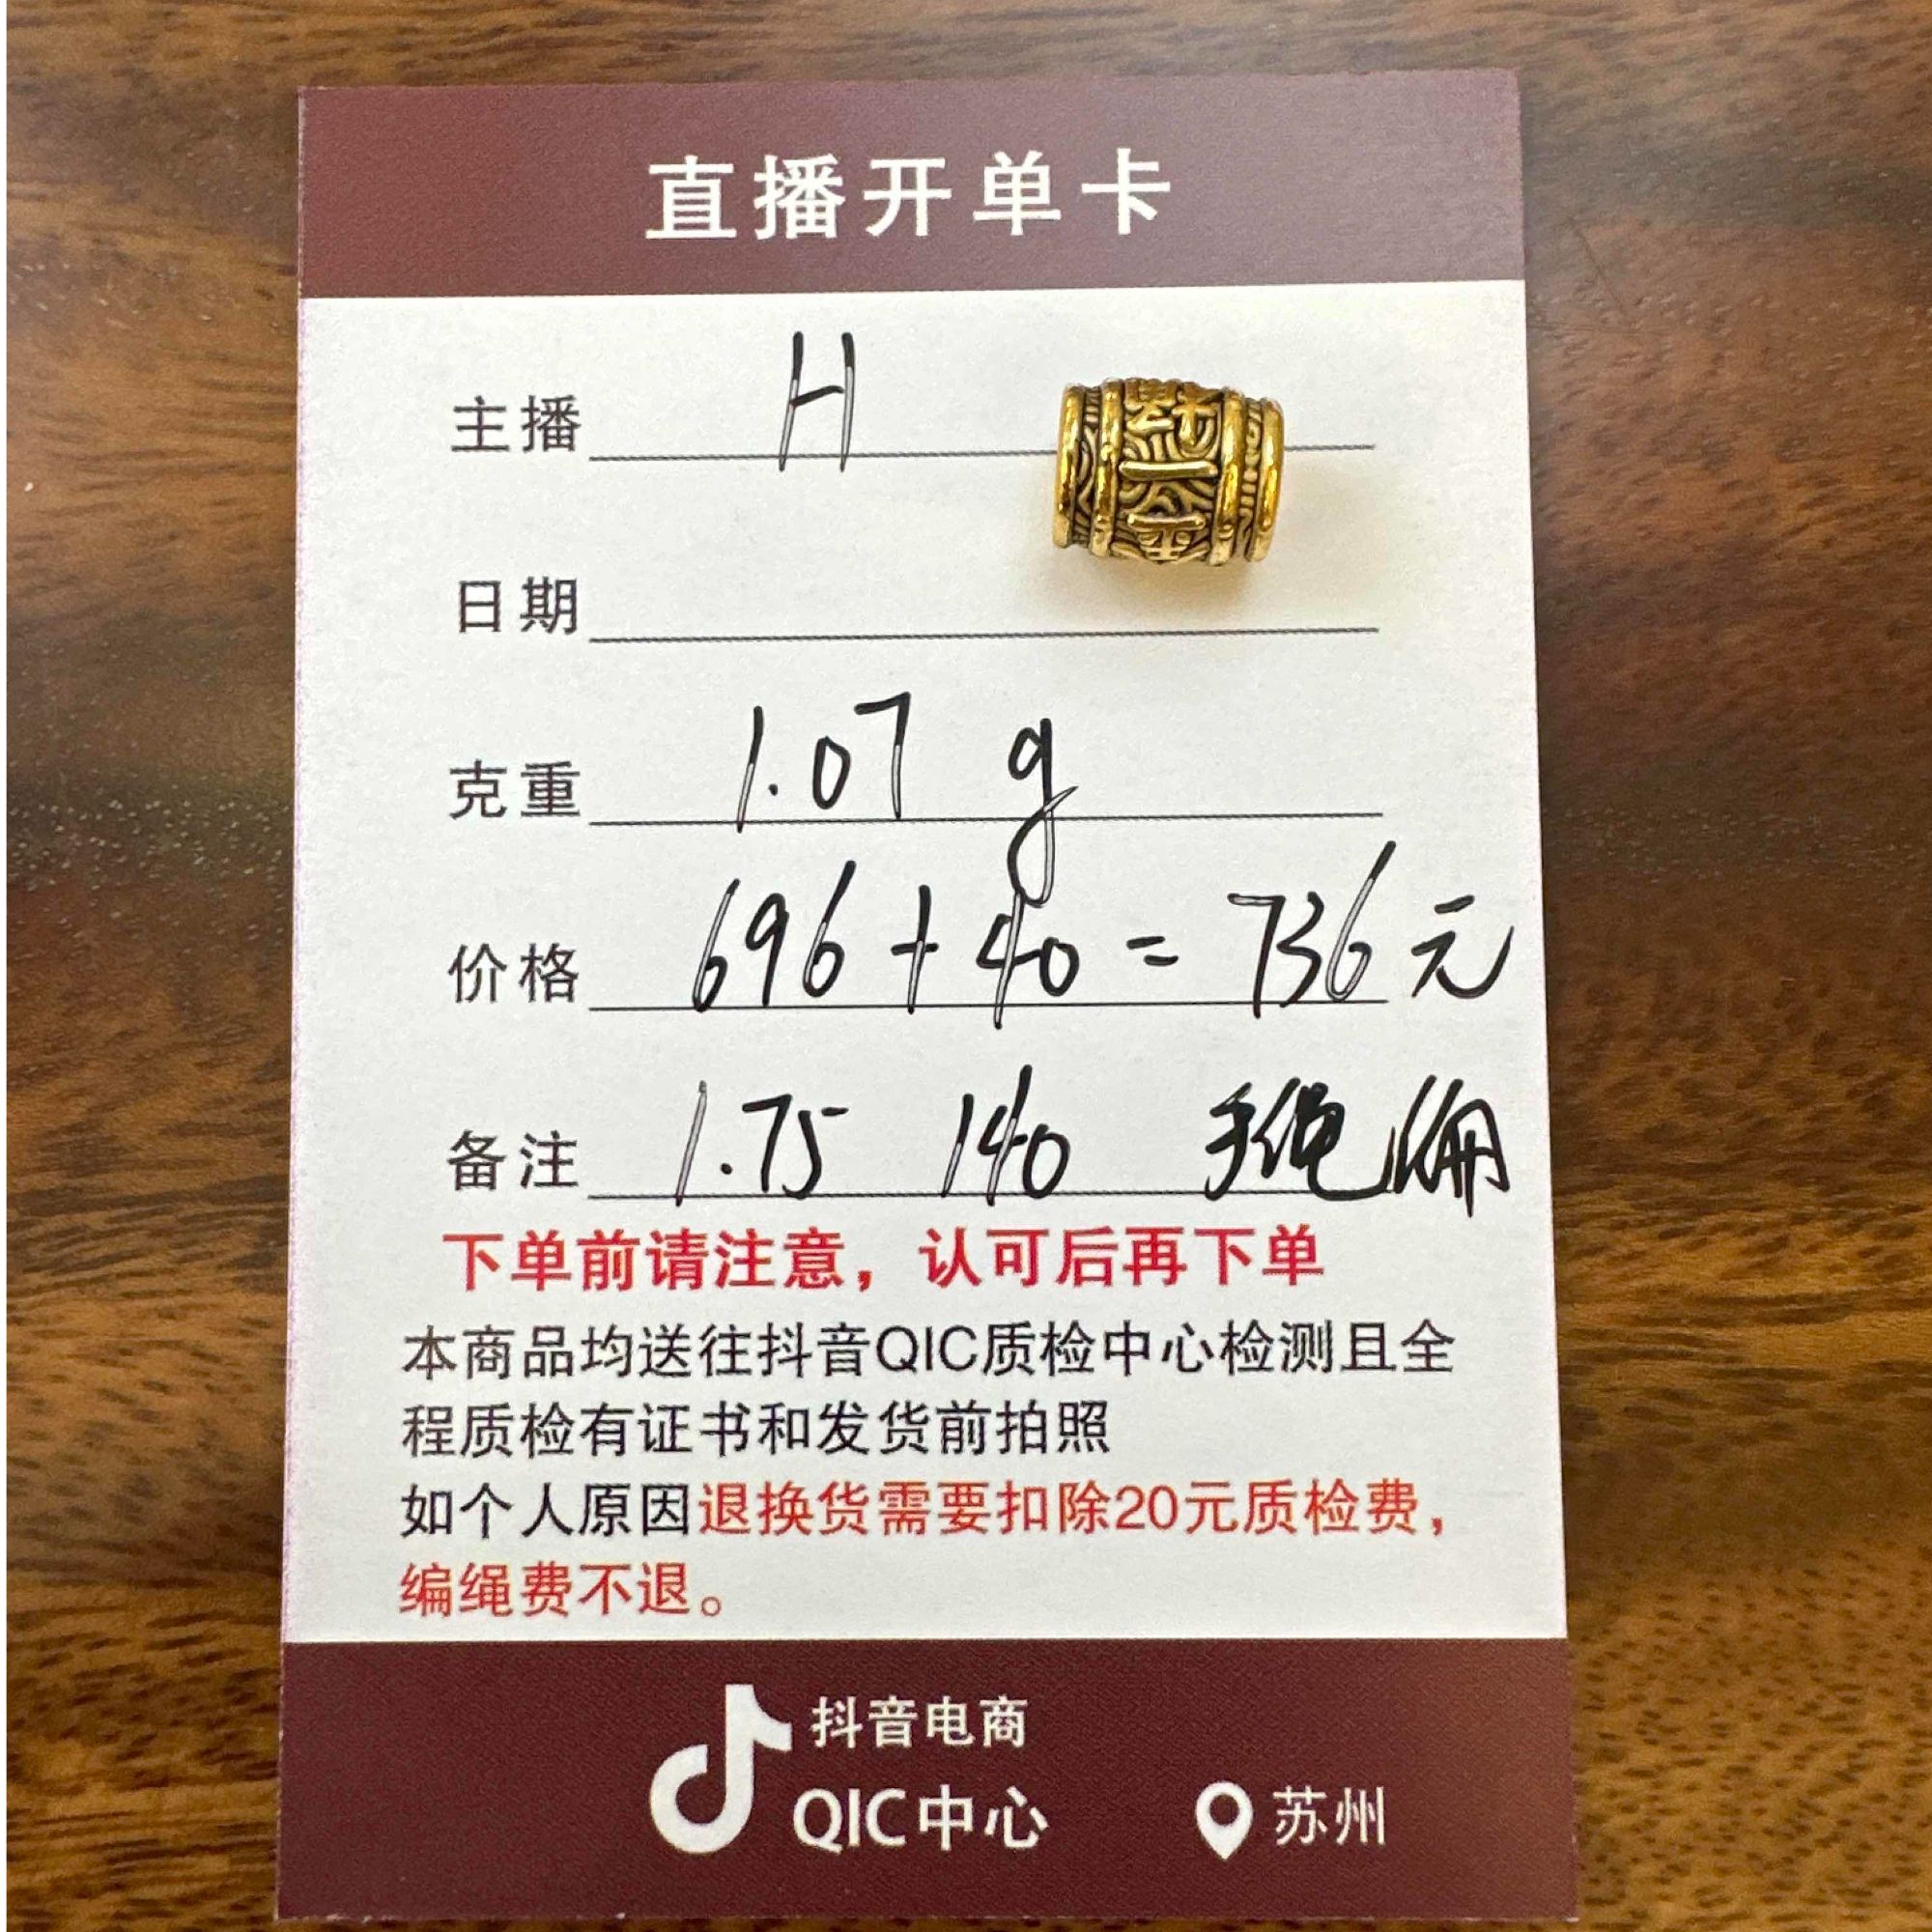 直播开单卡
主播 H
日期
克重 1.07 g
价格 696+40=736元
备注 1.75 140 手绳
下单前请注意，认可后再下单
本商品均送往抖音QIC质检中心检测且全
程质检有证书和发货前拍照
如个人原因退换货需要扣除20元质检费，
编绳费不退。
抖音电商
QIC中心
苏州